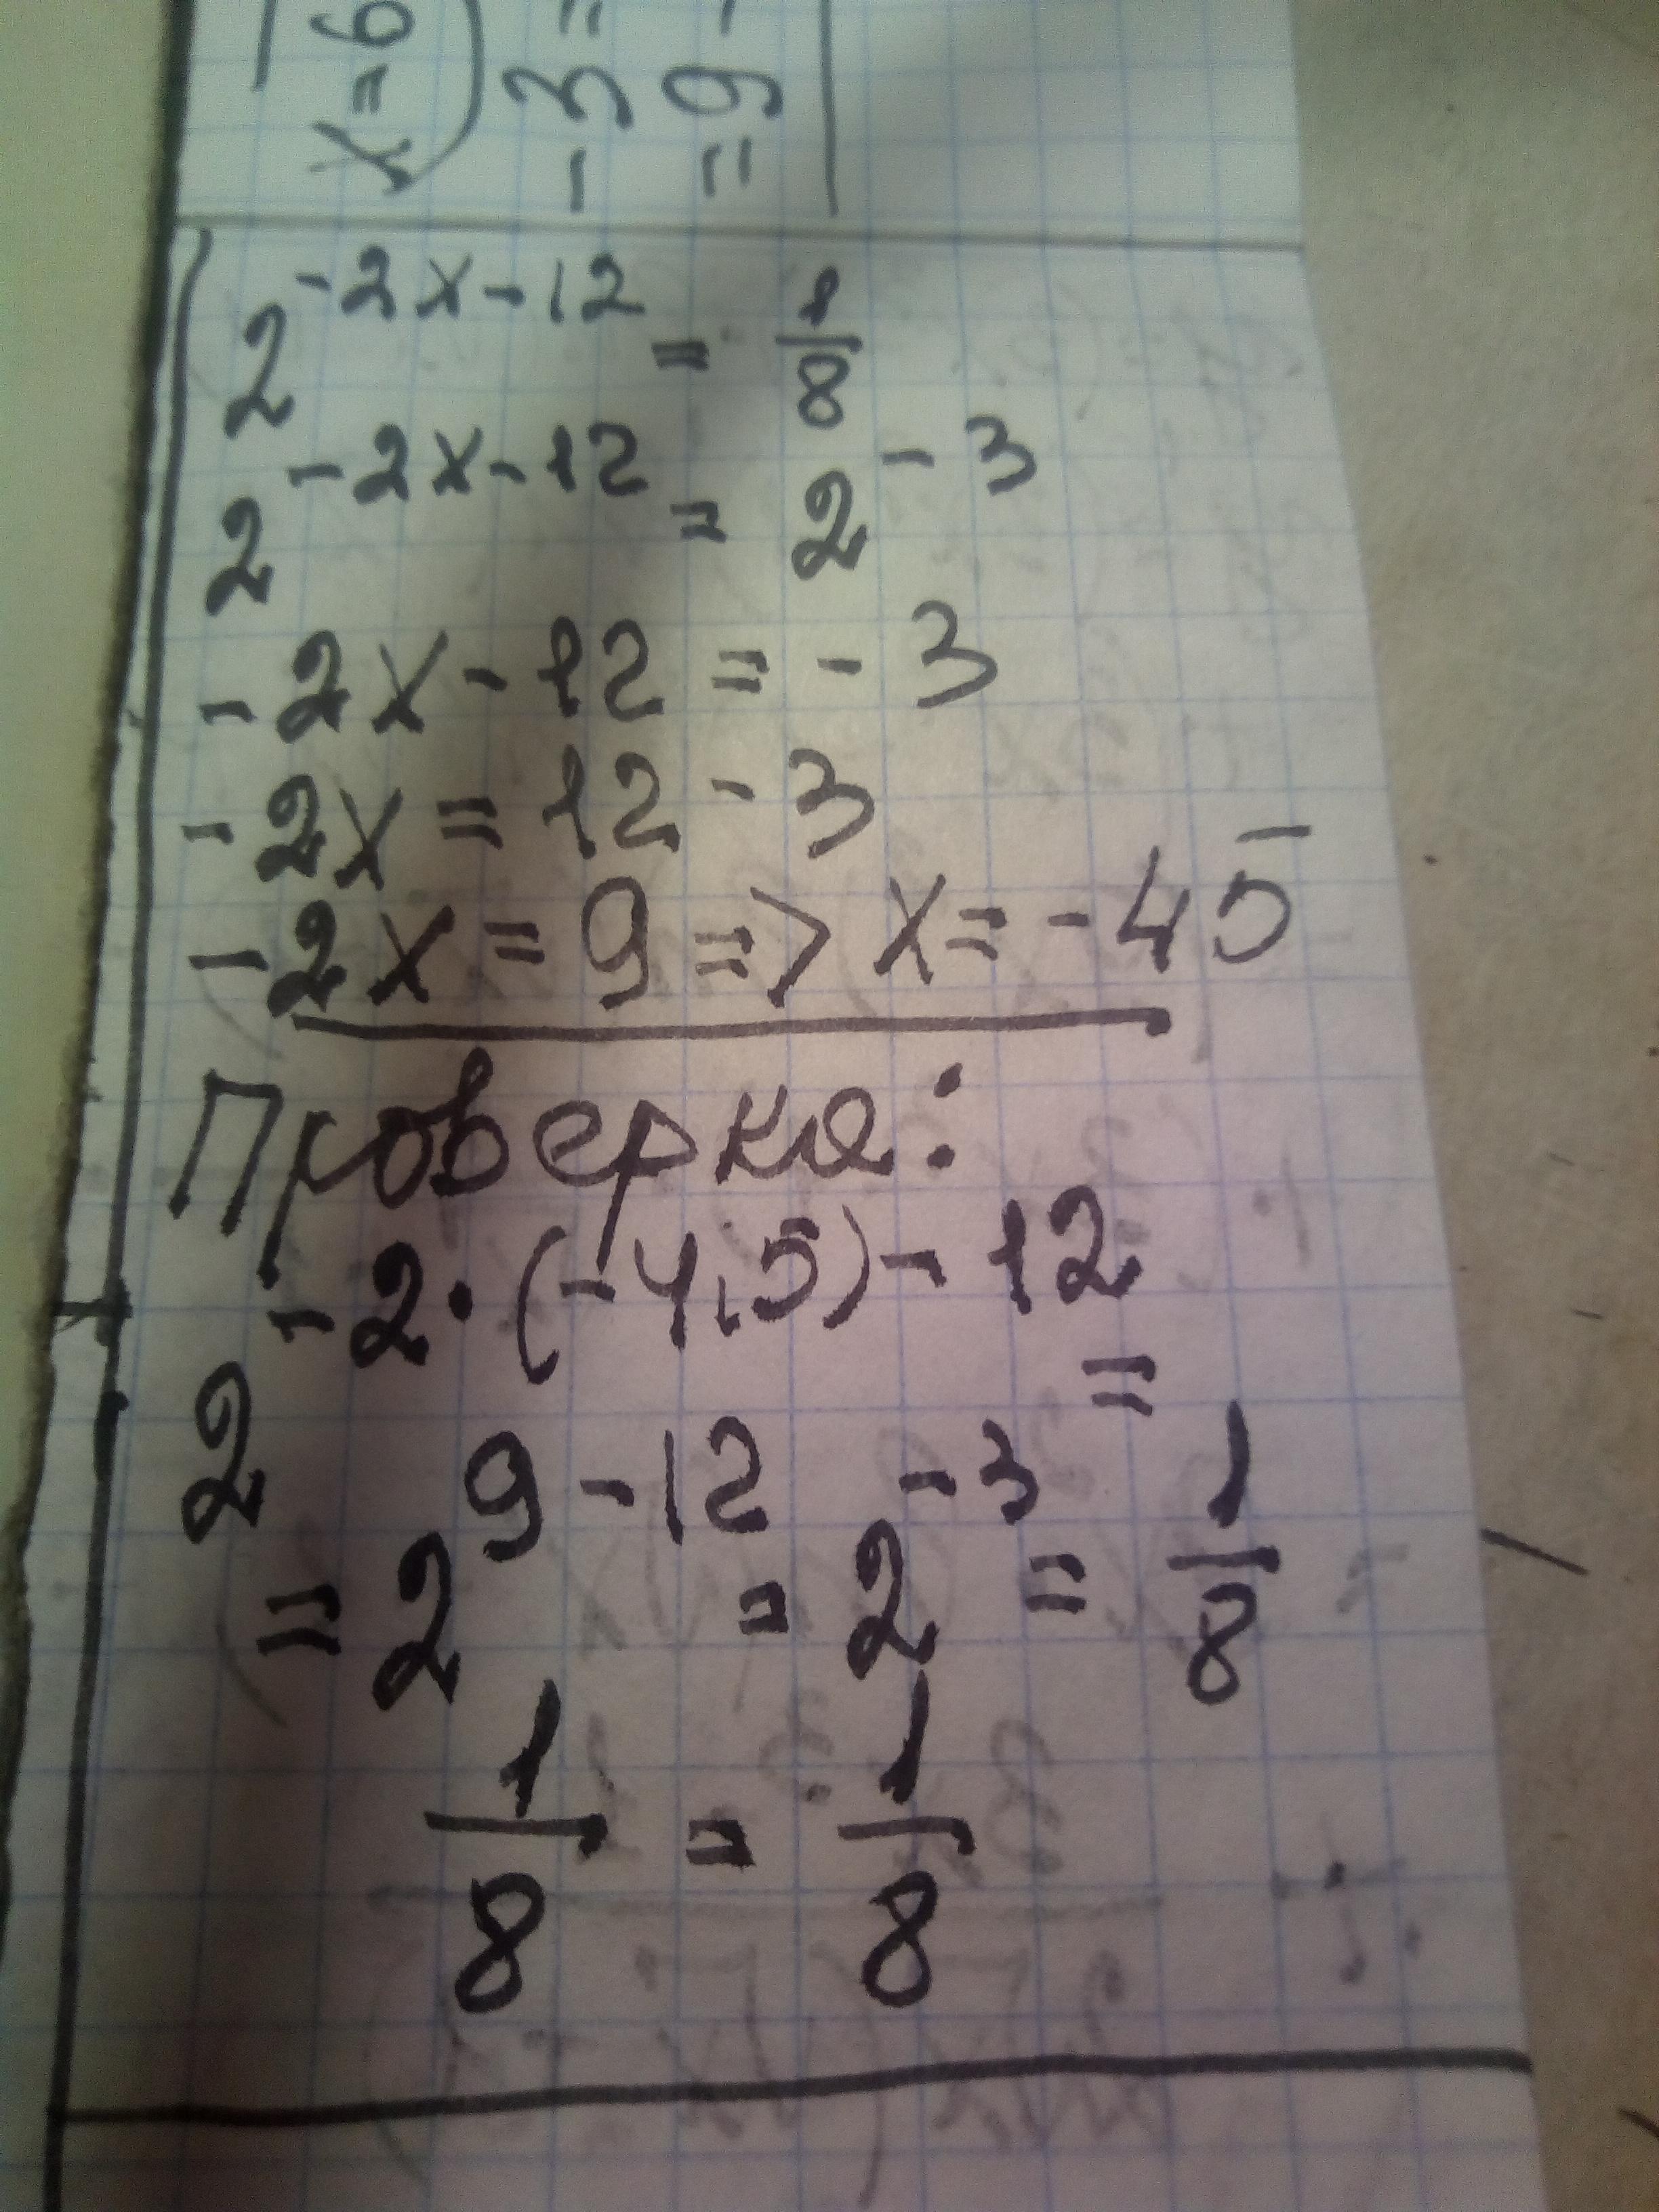 x=6)
-3=
=9-
2^{-2x-12} = 1/8
2^{-2x-12} = 2^{-3}
-2x-12=-3
-2x=12-3
-2x=9 => x=-45
Проверка:
2^{-2·(-4,5)-12} =
=2^{9-12} = 2^{-3} = 1/8
1/8 = 1/8